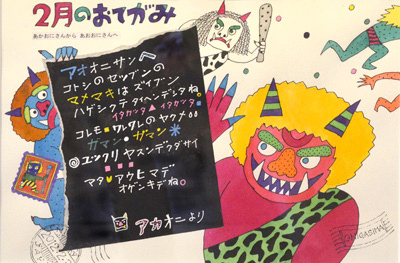 2月のおてがみ
あかおにさんから あおおにさんへ
アオオニサンへ
コトシのセツブンの
マメマキはズイブン
ハゲシクテ タイヘンデシタね。
イタカッタ イタカッタ
コレモ ワレワレのヤクメ
ガマン・ガマン
ユックリ ヤスンデクダサイ
マタ アウヒマデ
オゲンキデね。
アカオニより
ONIGASIMA